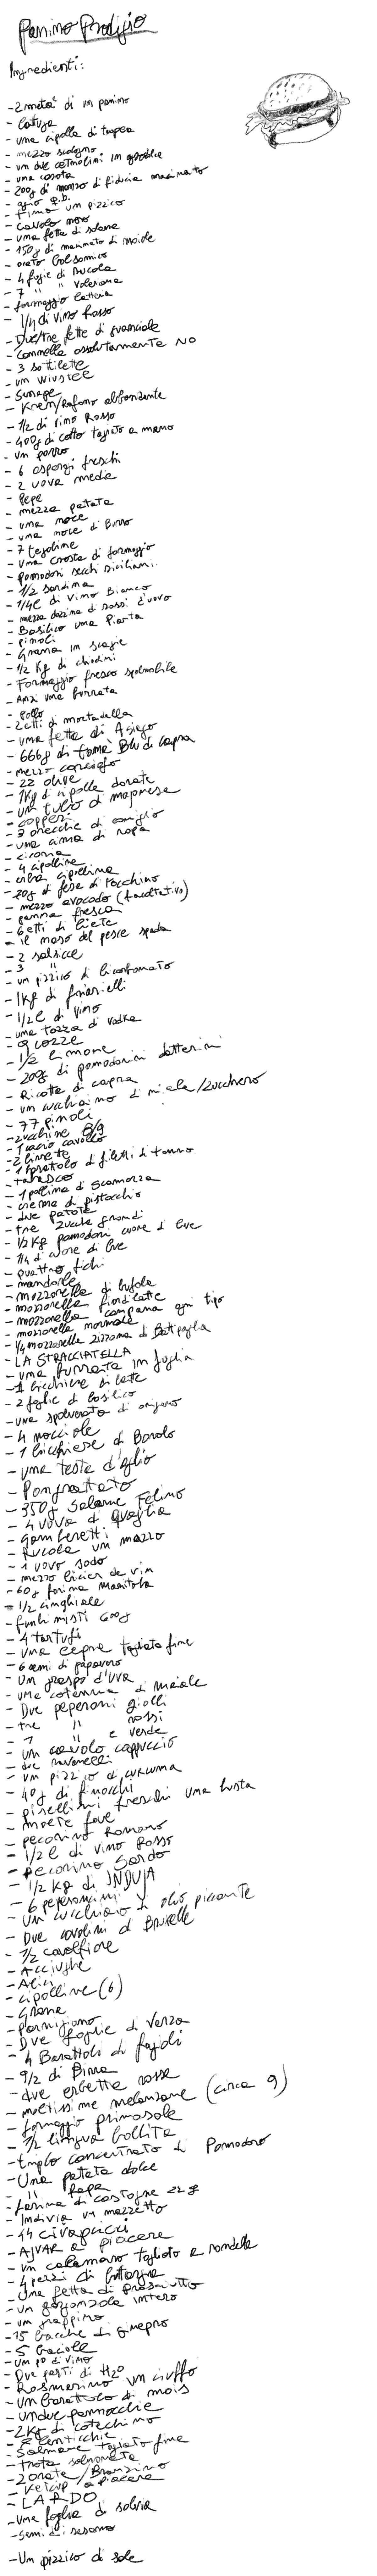 Panino Prodigio
Ingredienti:
- 2 metà di un panino
- Lattuga
- una cipolla di tropea
- mezzo scalogno
- un due cetriolini in
- una carota
- 200g di manzo di fiducia macinato
- aglio q.b.
- timo un pizzico
- cavolo nero
- una fetta di
- 150g di macinato di maiale
- aceto balsamico
- 4 foglie di Rucola
- 7 " " Valeriana
- formaggio latteria
- 1/4 di vino Rosso
- Due/tre fette di guanciale
- Cannella assolutamente NO
- 3 sottilette
- un WUSTEL
- Senape
- Kren/Rafano abbondante
- 1/2 di vino Rosso
- 400g di cotto tagliato a mano
- un porro
- 6 asparagi freschi
- 2 uova medie
- Pepe
- mezza patata
- una noce
- una noce di Burro
- 7 tegoline
- una crosta di formaggio
- pomodori secchi siciliani.
- 1/2 sardina
- 1/4 l di vino Bianco
- mezza dozzina di rossi d'uovo
- Basilico una Pianta
- pinoli
- Grana in scaglie
- 1/2 Kg di chiodini
- Formaggio fresco spalmabile
- Anzi una burrata
- pollo
- 2 etti di mortadella
- una fetta di Asiago
- 666g di toma Blu di capra
- mezzo carciofo
- 22 olive
- 1Kg di cipolle dorate
- un tubo di maionese
- capperi
- 3 orecchie di coniglio
- una cima di rapa
- 4 cipolline
- erba cipollina
- 20g di fesa di tacchino
- mezzo avocado (facoltativo)
- panna fresca
- 6 etti di biete
- il naso del pesce spada
- 2 salsicce
- 3 "
- un pizzico di bicarbonato
- 1kg di friarielli
- 1/2 l di vino
- una tazza di vodka
- 9 cozze
- 1/2 limone
- 200g di pomodorini datterini
- Ricotta di capra
- un cucchiaino di miele/zucchero
- 77 pinoli
- zucchine 8/9
- 1 cacio cavallo
- 1 barattolo di filetti di tonno
- tabasco
- 1 pallina di scamorza
- crema di pistacchio
- due patate
- tre zucche grandi
- 1/2 Kg pomodori cuore di bue
- 1/4 di cuore di bue
- quattro fichi
- mandorle
- mozzarella di bufala
- mozzarella fiordilatte
- mozzarella campana ogni tipo
- mozzarella normale
- 1/4 mozzarella zizzona di Battipaglia
- LA STRACCIATELLA
- una burrata in foglia
- 1 bicchiere di latte
- 2 foglie di basilico
- una spolverata di origano
- 4 nocciole
- 1 bicchiere di Barolo
- una testa d'aglio
- Pangrattato
- 350g Salame Felino
- 4 uova di quaglia
- gamberetti
- Rucola un mazzo
- 1 uovo sodo
- mezzo bicier de vin
- 60g farina Manitoba
- 1/2 cinghiale
- funghi misti 600g
- 4 tartufi
- una cepa tagliata fine
- 6 semi di papavero
- un grappo d'uva
- una cotenna di maiale
- Due peperoni gialli
- tre " rossi
- 1 " e verde
- un cavolo cappuccio
- due ravanelli
- un pizzico di curcuma
- 40g di finocchi
- pisellini freschi una busta
- moete fave
- pecorino Romano
- 1/2 l di vino Rosso
- pecorino Sardo
- 1/2 Kg di INDUJA
- 6 peperoncini
- un cucchiaio di olio piccante
- Due cavolini di Bruxelle
- 1/2 cavolfiore
- Acciughe
- Alici
- cipolline (6)
- Grana
- Parmigiano
- Due foglie di Verza
- 4 Barattoli di fagioli
- 9/2 di Birra
- due erbette rosse
- moltissime melanzane (circa 9)
- formaggio primosale
- 1/2 lingua bollita
- triplo concentrato di Pomodoro
- Una patata dolce
- " rapa
- farina di castagne 22g
- Indivia un mazzetto
- 14 civapcici
- AJVAR a piacere
- un calamaro tagliato a rondelle
- 4 pezzi di bottarga
- Una fetta di prosciutto
- un gorgonzola intero
- un grappino
- 15 bacche di ginepro
- un pò di vino
- Due parti di H2O
- Rosmarino un ciuffo
- un barattolo di mais
- un/due pannocchie
- 2Kg di cotechino
- E lenticchie
- Salmone tagliato fine
- trota salmonata
- 2 orate/Branzino
- Ketcup a piacere
- LARDO
- una foglia di salvia
- semi di sesamo
- Un pizzico di sale